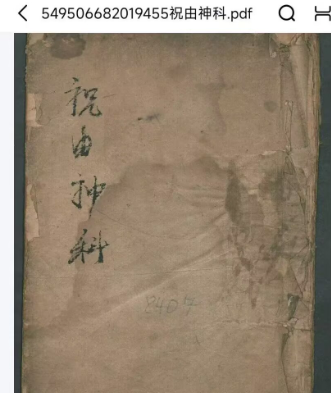 549506682019455祝由神科.pdf
祝由神科
8407